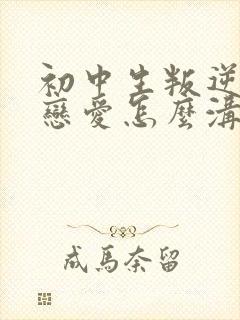 初中生叛逆
戀愛怎麼溝
成馬奈留